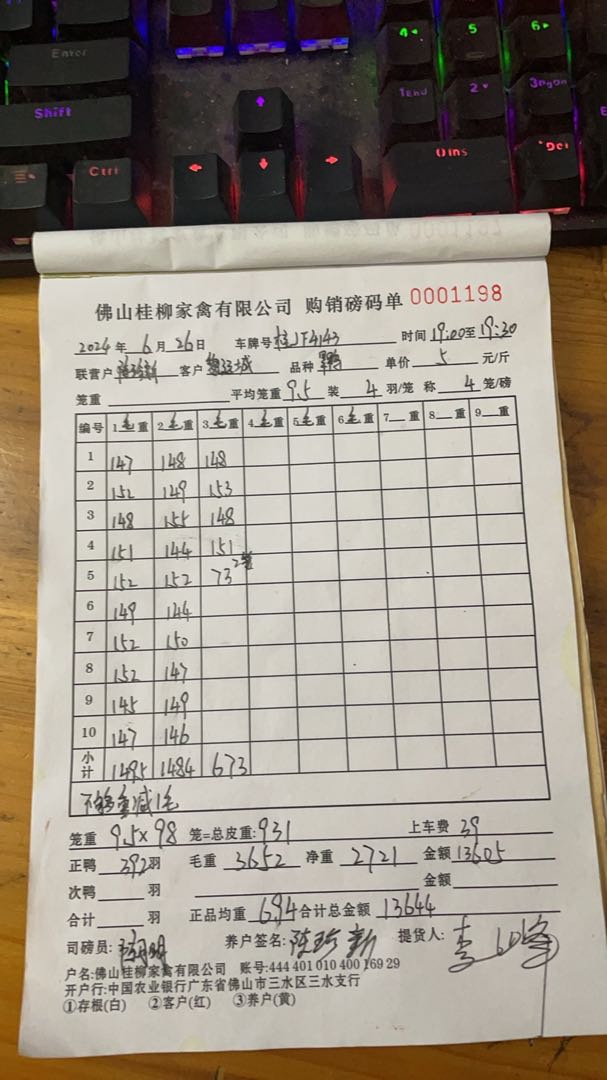 Enter
Shift
Ctrl
4 5 6
1End 2 3PgDn
0Ins .Del
佛山桂柳家禽有限公司 购销磅码单 0001198
2024年 6月 26日 车牌号 桂JF4143 时间 19:00至19:30
联营户 客户 品种 单价 5 元/斤
笼重 平均笼重 9.5 装 4 羽/笼 称 4 笼/磅
编号 1毛重 2毛重 3毛重 4毛重 5毛重 6毛重 7重 8重 9重
1 147 148 148
2 152 149 153
3 148 155 148
4 151 144 151
5 152 152 73 2笼
6 149 144
7 152 150
8 152 147
9 145 149
10 147 146
小计 1495 1484 673
减1毛
笼重 9.5×98 笼=总皮重:931 上车费 39
正鸭 392 羽 毛重 3652 净重 2721 金额 13605
次鸭 羽 金额
合计 羽 正品均重 6.94 合计总金额 13644
司磅员: 养户签名: 提货人:
户名:佛山桂柳家禽有限公司 账号:444 401 010 400 169 29
开户行:中国农业银行广东省佛山市三水区三水支行
①存根(白) ②客户(红) ③养户(黄)